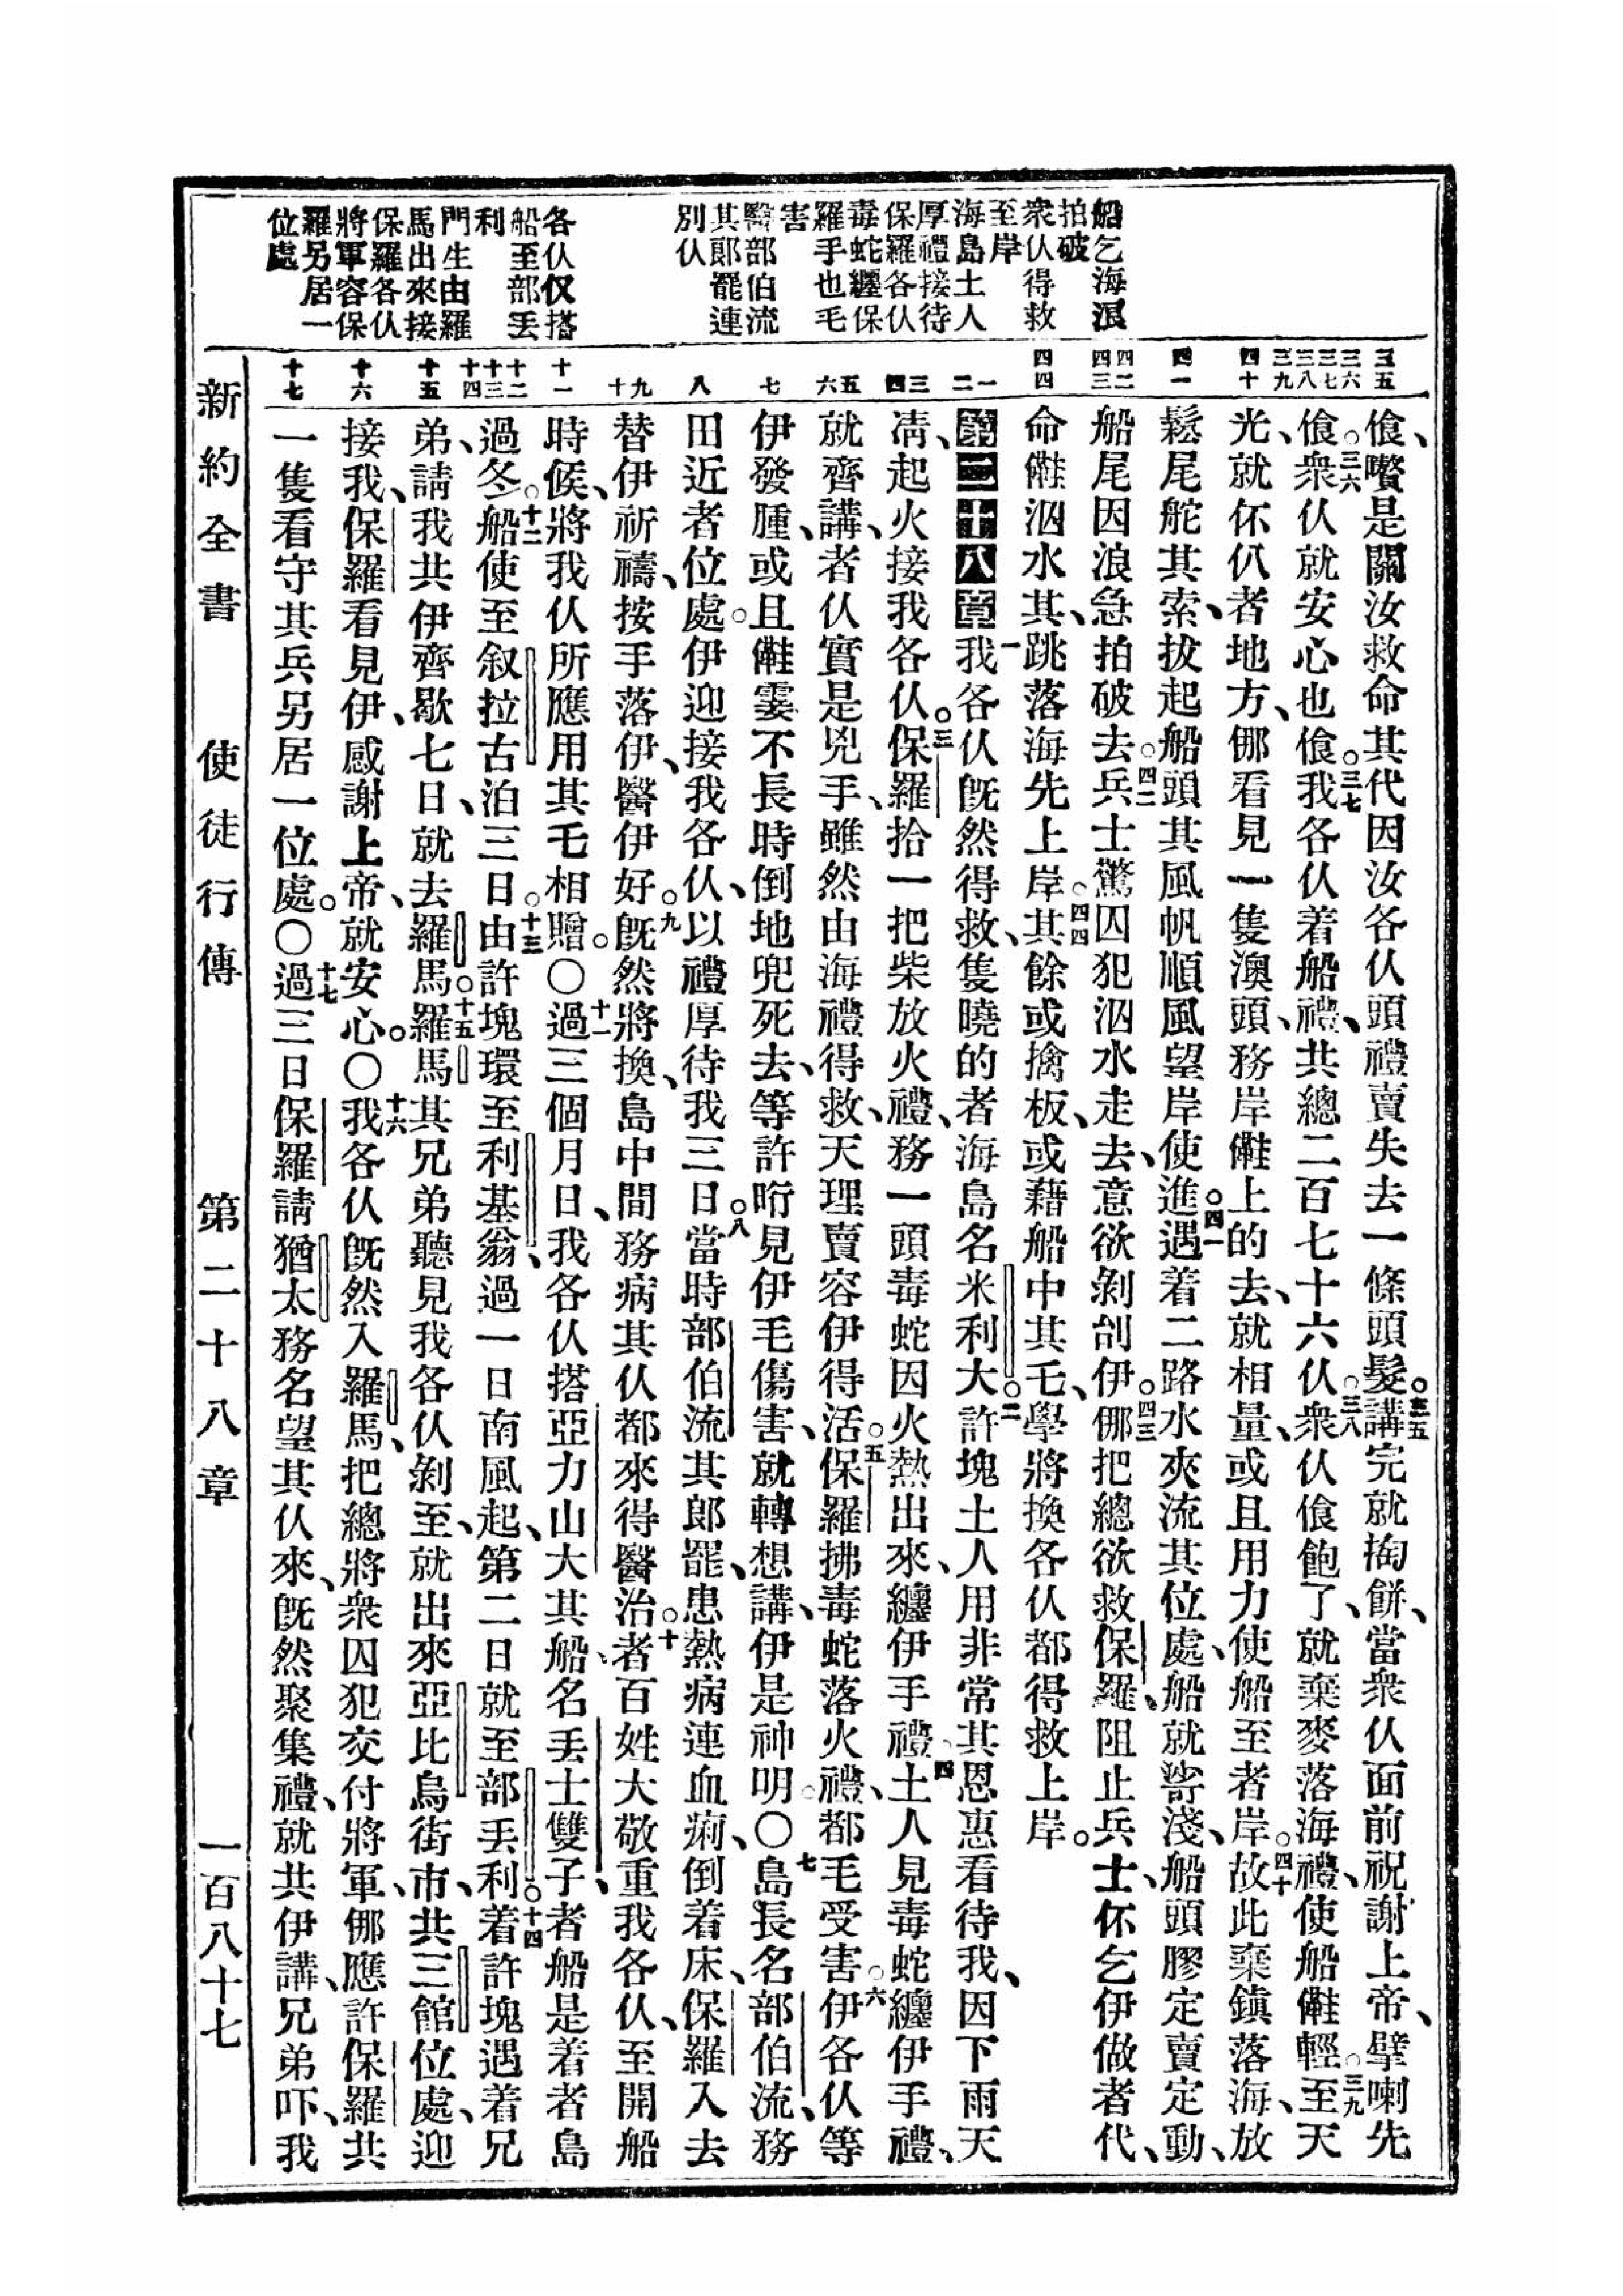 船乞海浪
拍破
衆仫得救
至岸
海島土人
厚禮接待
保羅各仫
毒蛇纏保
羅手也毛
害
醫部伯流
其郞罷連
別仫
各仫仅搭
船至部丟
利
門生由羅
馬出來接
保羅各仫
將軍容保
羅另居一
位處
三五
三六
三七
三八
三九
四十
四一
四二
四三
四四
一
二
三
四
五
六
七
八
九
十
十一
十二
十三
十四
十五
十六
十七
飧、嚽是關汝救命其代因汝各仫頭禮賣失去一條頭髮。三五講完就掏餅、當衆仫面前祝謝上帝、擘喇先
飧。三六衆仫就安心也飧。三七我各仫着船禮、共總二百七十六仫。三八衆仫飧飽了、就棄麥落海禮、使船𣍐輕。三九至天
光、就伓仈者地方、㑚看見一隻澳頭、務岸𣍐上的去、就相量、或且用力使船至者岸。四十故此棄鎮落海、放
鬆尾舵其索、拔起船頭其風帆順風望岸使進。四一遇着二路水夾流其位處、船就䈪淺、船頭膠定賣定動、
船尾因浪急拍破去。四二兵士驚囚犯泅水走去、意欲剝刣伊。四三㑚把總欲救保羅、阻止兵士、伓乞伊做者代、
命𣍐泅水其、跳落海先上岸。四四其餘或擒板、或藉船中其乇、學將換各仫都得救上岸。
第二十八章一我各仫旣然得救、隻曉的者海島名米利大。二許塊土人用非常其恩惠看待我、因下雨天
凊、起火接我各仫。三保羅拾一把柴放火禮、務一頭毒蛇因火熱出來、纏伊手禮。四土人見毒蛇纏伊手禮、
就齊講、者仫實是兇手、雖然由海禮得救、天理賣容伊得活。五保羅拂毒蛇落火禮、都毛受害。六伊各仫等
伊發腫、或且𣍐霎不長時倒地兜死去、等許昕見伊毛傷害、就轉想講、伊是神明。〇七島長名部伯流、務
田近者位處。伊迎接我各仫、以禮厚待我三日。八當時部伯流其郞罷、患熱病連血痢、倒着床、保羅入去
替伊祈禱、按手落伊、醫伊好。九旣然將換、島中間務病其仫都來得醫治。十者百姓大敬重我各仫、至開船
時候、將我仫所應用其乇相贈。〇十一過三個月日、我各仫搭亞力山大其船、名丟士雙子、者船是着者島
過冬。十二船使至叙拉古泊三日。十三由許塊環至利基翁、過一日南風起、第二日就至部丟利。十四着許塊遇着兄
弟、請我共伊齊歇七日、就去羅馬。十五羅馬其兄弟聽見我各仫剝至、就出來亞比烏街市、共三館位處、迎
接我、保羅看見伊、感謝上帝、就安心。〇十六我各仫旣然入羅馬、把總將衆囚犯交付將軍、㑚應許保羅共
一隻看守其兵另居一位處。〇十七過三日保羅請猶太務名望其仫來、旣然聚集禮、就共伊講、兄弟吓、我
新約全書 使徒行傳 第二十八章 一百八十七